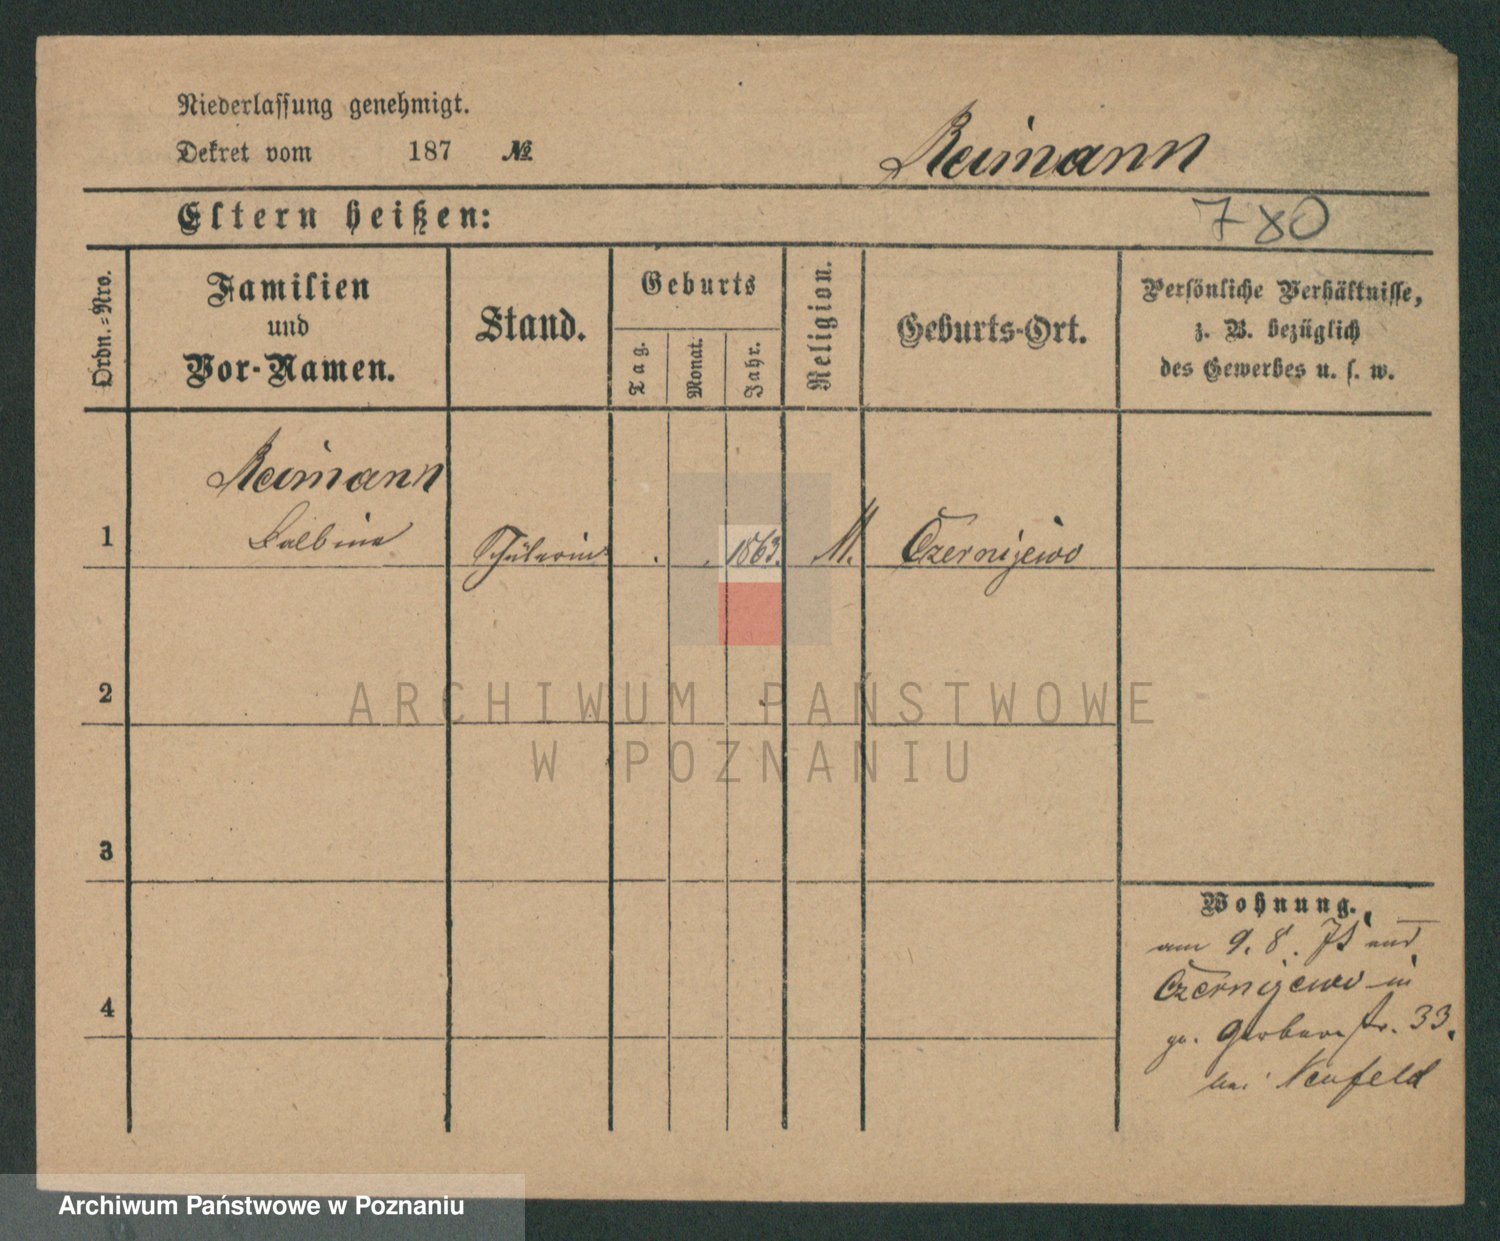 Niederlassung genehmigt.
Dekret vom 187 №
Reimann
Eltern heißen:
780
Ordn.-Nro.
Familien
und
Vor-Namen.
Stand.
Geburts
Tag.
Monat.
Jahr.
Religion.
Geburts-Ort.
Persönliche Verhältnisse,
z. B. bezüglich
des Gewerbes u. s. w.
Reimann
1 Balbina Schülerin . . 1863. M. Czernijewo
2
ARCHIWUM PAŃSTWOWE
W POZNANIU
3
4
Wohnung.
am 9. 8. 75 aus
Czernijewo in
gr. Gerberstr. 33.
bei Neufeld
Archiwum Państwowe w Poznaniu